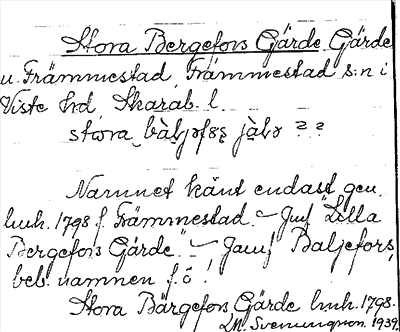 Stora Bergefors Gärde Gärde
u. Främmestad, Främmestad s:n i
Viste hd, Skarab. l.
stora bàljəfǫʂ jàḷə ? ?
Namnet känt endast gen.
lmh. 1798 f. Främmestad. – Jmf "Lilla
Bergefors Gärde." – Jämf Baljefors,
beb. namnen f. ö.!
Stora Bärgefors Gärde lmh. 1798.
M. Svenungson. 1939